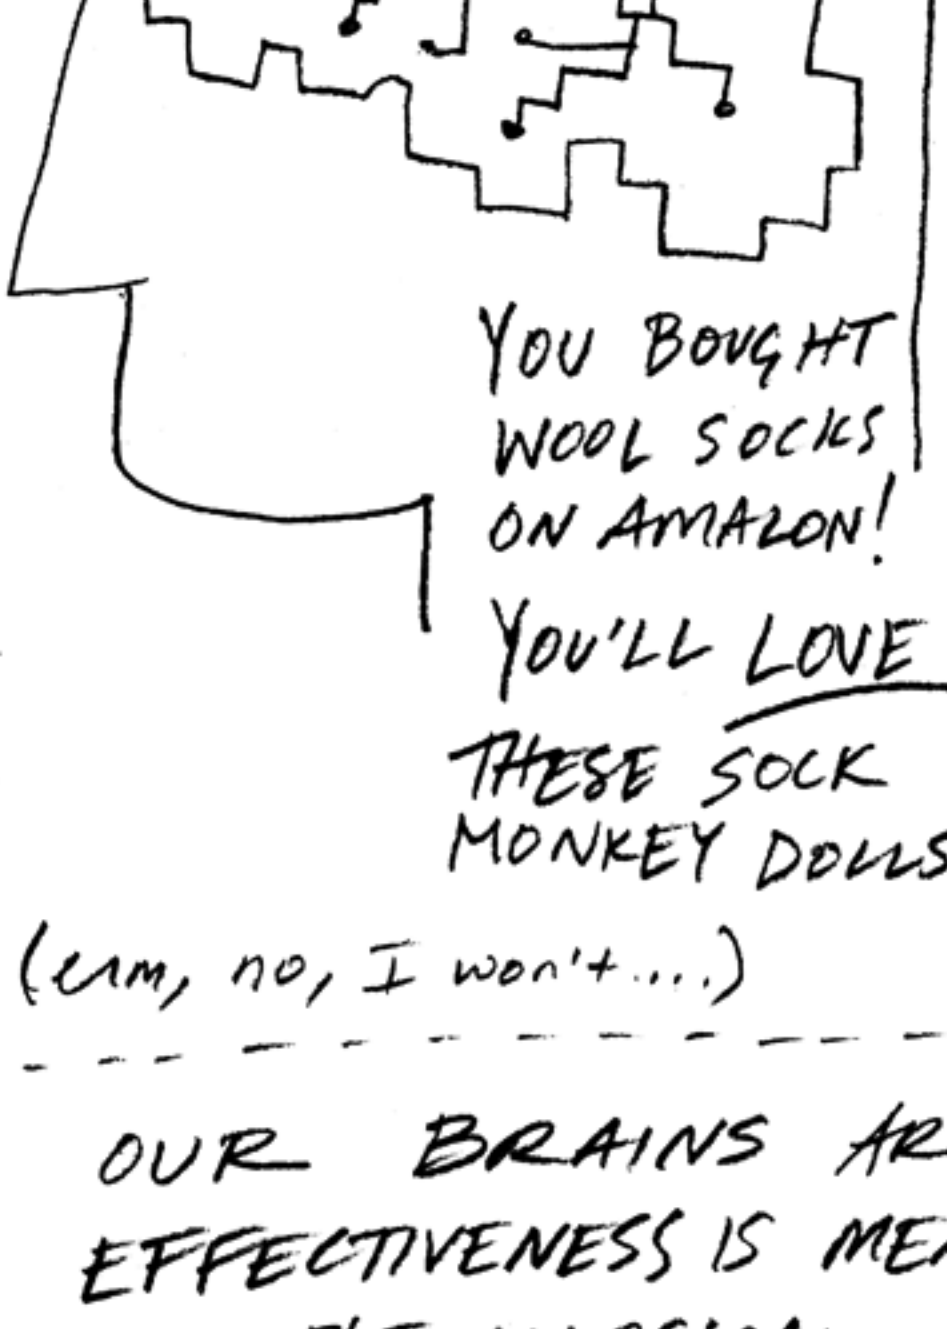 YOU BOUGHT
WOOL SOCKS
ON AMAZON!
YOU'LL LOVE
THESE SOCK
MONKEY DOLLS
(erm, no, I won't....)
OUR BRAINS AR
EFFECTIVENESS IS MEA